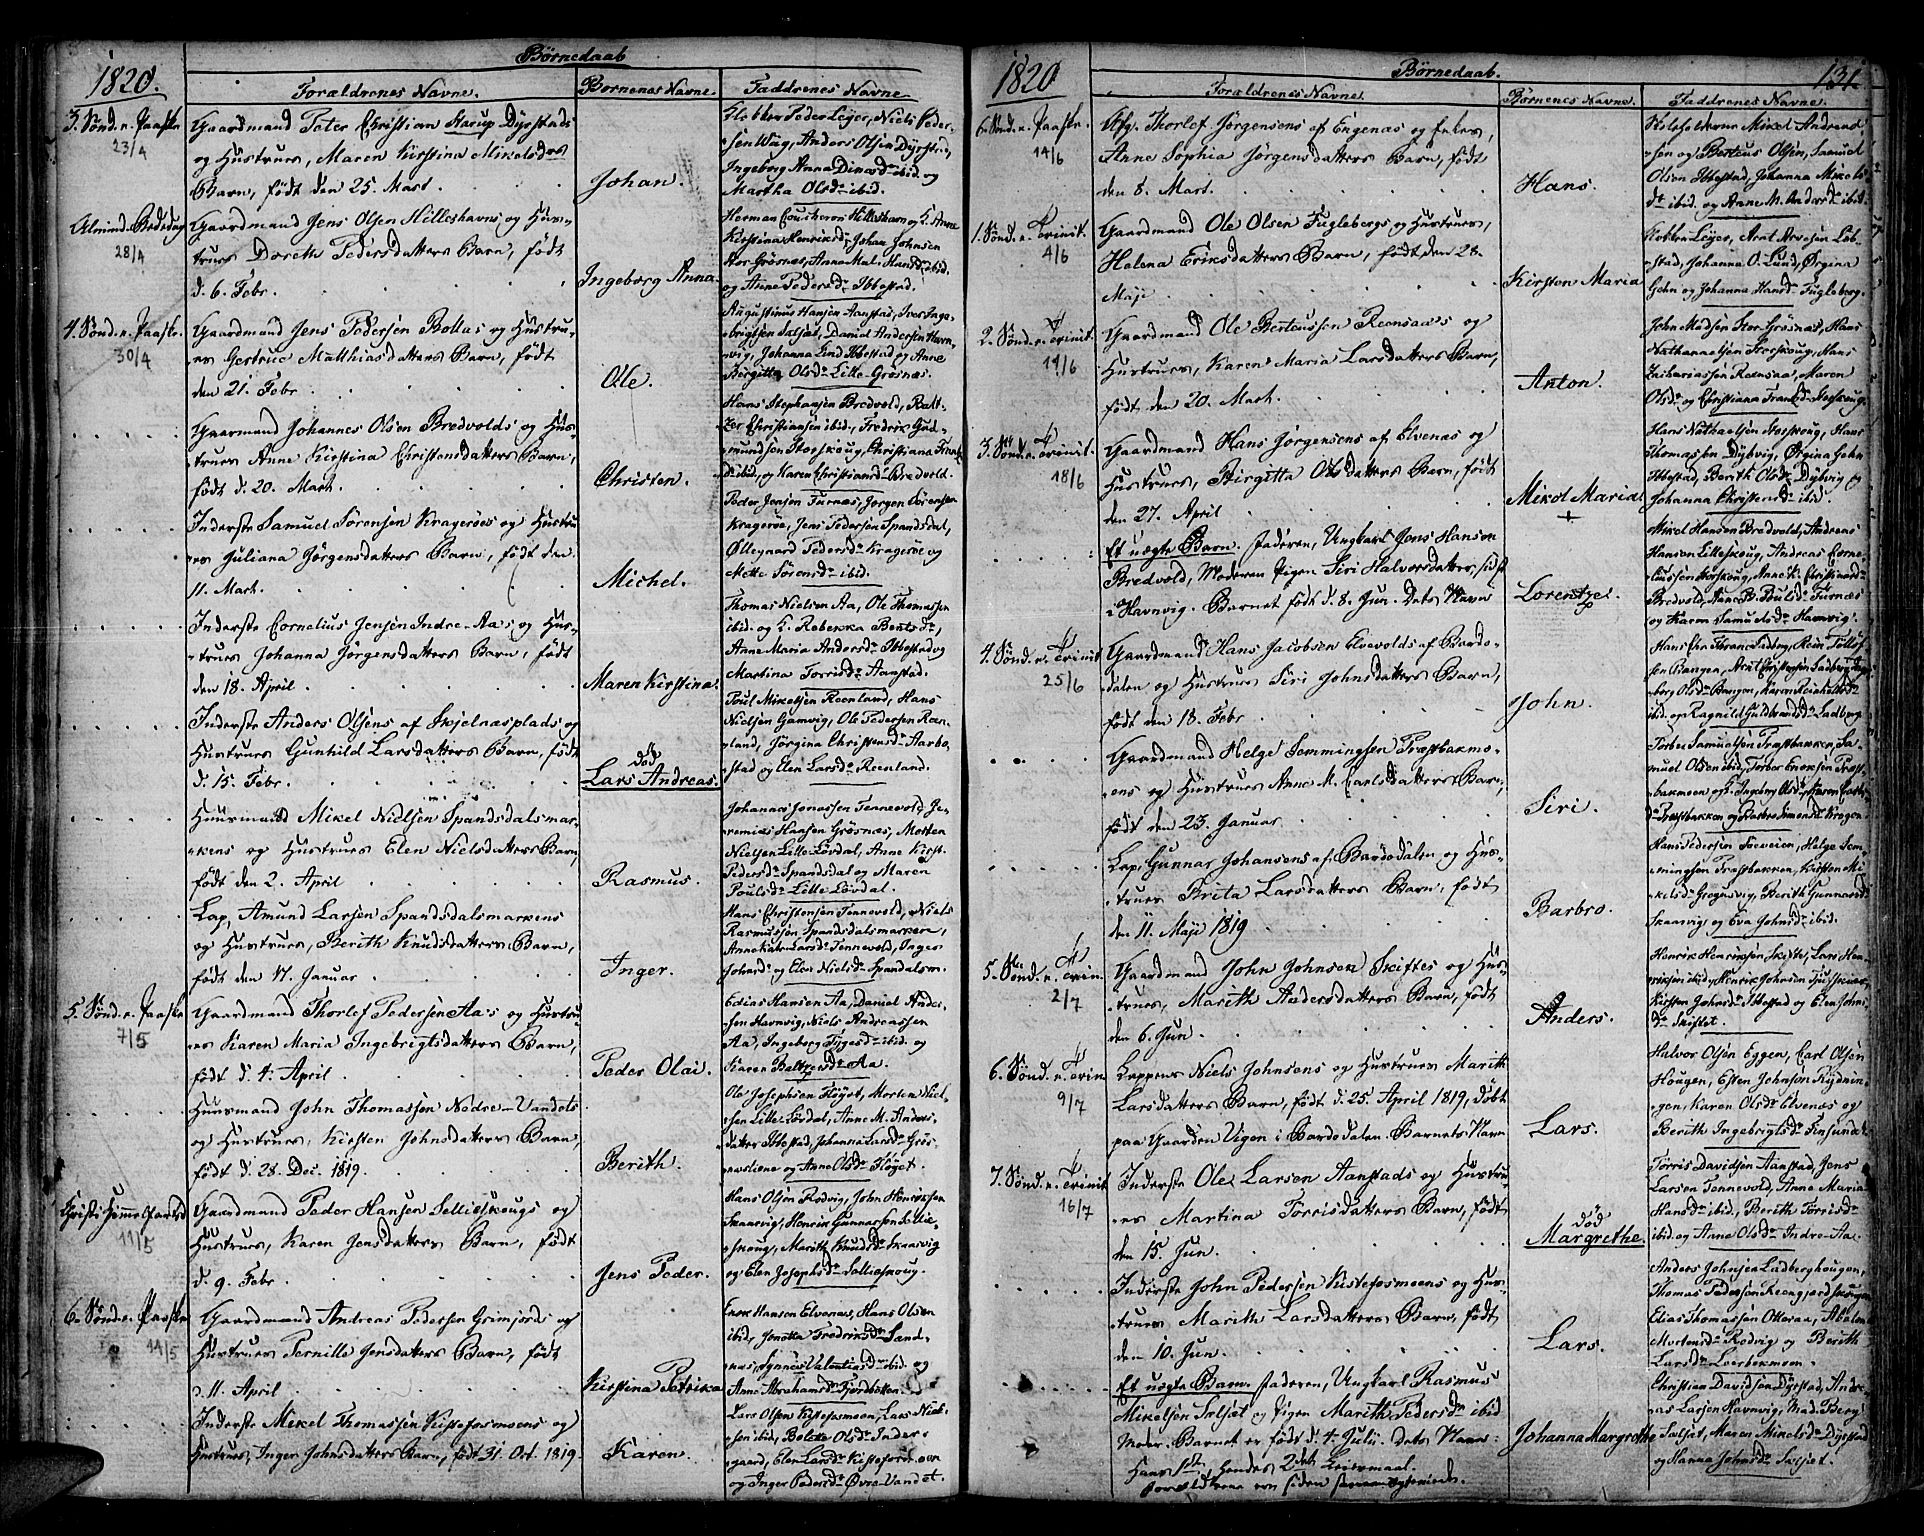 1820.
Børnedaab
Forældrenes Navne.
Børnenes Navne.
Faddrenes Navne.
3. Sønd. n. Paaske
23/4
Gaardmand Peter Christian Harup Dyrstads
og Hustrues, Maren Kirstina Mikelsdrs
Barn, født den 25. Mart.
Johan.
Klokker Peder Lejer, Niels Peder-
sen Wåg, Anders Olsen Dyrstad,
Ingeborg Anna ibid og
Martha Olsdr ibid.
Almind. Bededag
28/4
Gaardmand Jens Olsen Hilleshavns og Hus-
trues Doreth Pedersdatters Barn, født
d. 6. Febr.
Ingeborg Anna.
Herman Hilleshavn og K. Anne
Kirstina Henriksdr, Johan Johnsen
Stor Grøsnæs, Anne Mal. Hansdr ibid.
og Anne Pedersdr Ibbestad.
4. Sønd. n. Paaske.
30/4
Gaardmand Jens Pedersen Bollas og Hustru-
es Gertrue Matthiasdatters Barn, født
den 21. Febr.
Ole.
Augustinus Hansen Aanstad, Iver Inge-
brigtsen Sælsæt, Daniel Andersen Havn-
vig, Johanna Lind Ibbestad og Anne
Birgitta Olsdr Lille-Grøsnæs.
Gaarmand Johannes Olsen Bredvolds og Hus-
trues Anne Kirstina Christensdatters Barn,
født d. 20. Mart.
Christen.
Hans Stephansen Bredvold, Balt-
zer Christiansen ibid, Fredrik Gud-
mundsen Storskoug, Christiana
ibid, og Karen Christiansdr Bredvold.
Inderste Samuel Sørensen Kragerøes og Hustru
es Juliana Jørgensdatters Barn, født den
11. Mart.
Michel.
Peder Jensen Furnæs, Jørgen Sørensen
Kragerøe, Jens Pedersen Spandsdal,
Ølleygnard Pedersdr Kragerøe og
Mette Sørensdr ibid.
Inderste Cornelius Jensen Indre-Aa's og Hus-
trues Johanna Jørgensdatters Barn, født
den 18. April.
Maren Kirstina.
Thomas Nielsen Aa, Ole Thomassen
ibid. og K. Rebekka Bentsdr,
Anne Maria Andersdr Ibbestad og
Martina Torrisdr Aanstad.
Inderste Anders Olsens af Skjelnæsplads og
Hustrues Gunhild Larsdatters Barn, født
d. 15. Febr.
død
Lars Andreas.
Poul Mikelsen Reenland, Hans
Nielsen Gamvig, Ole Pedersen Ren-
land, Jørgina Christensdr Aarbo-
stad og Elen Larsdr Reenland.
Huusmand Mikel Nielsen Spandsdalsmar-
kens og Hustrues Elen Nielsdatters Barn,
født den 2. April
Rasmus.
Johannes Jonassen Tennevold, Je-
remias Hansen Grøsnæs, Morten
Nielsen Lille-Løvdal, Anne Kirst.
Pedersdr Spandsdal og Maren
Poulsdr Lille Løvdal.
Lap, Amund Larsen Spandsdalsmarkens
og Hustrues, Berith Knudsdatters Barn,
født den 17. Januar
Inger.
Hans Christensen Tennevold, Niels
Rasmussen Spandsdalsmarken,
Anne Kat. Larsdr Tennevold, Inger
Johnsdr og Elen Nielsdr Spandalsm.
5. Sønd. n. Paaske
7/5
Gaardmand Thorlef Pedersen Aa's og Hustru-
es Karen Maria Ingebrigtsdatters Barn,
født d. 4. April
Peder Olai.
Esaias Hansen Aa, Daniel Ander-
sen Havnvig, Niels Andreassen
Aa, Ingeborg ibid og
Karen Baltzersdr Aa.
Huusmand John Thomassen Nedre-Vandets
og Hustrues, Kirsten Johnsdatters Barn,
født d. 28. Dec. 1819.
Berith.
Ole Josephsen Fløyet, Morten Niel-
sen Lille-Løvdal, Anne M. Anders-
datter Ibbestad, Johanna Larsdr Grøs-
næsliene og Anne Olsdr Fløget.
Christi Himmelfartsd
11/5
Gaardmand Peder Hansen Sellieskougs og
Hustrues, Karen Jensdatters Barn, født
d. 9. Febr.
Jens Peder.
Hans Olsen Rodvig, John Henriksen
Skaarvig, Henrik Gunnarsen Sellie-
skoug, Marith Knudsdr Skaarvig
og Elen Josephsdr Sellieskoug.
6. Sønd. n. Paaske
14/5
Gaardmand Andreas Pedersen Grimjords og
Hustrues Pernille Jensdatters Barn, født
d. 11. April
Kirstina Petrika
Enok Hansen Elvenæs, Hans Olsen
ibid, Jenetta Fredriksdr Sand-
næs, Synnes Valentiasdr ibid. og
Anne Abrahamsdr Fjordbotten.
Inderste Mikel Thomassen Kistefosmoens og
Hustrues, Inger Johnsdatters Barn, født 31. Oct. 1819.
Karen.
Lars Olsen Kistefosmoen, Lars Niel-
sen ibid, Bolette Olsdr Inder-
gaard, Elen Larsdr Kistefosmoen
og Inger Pedersdr Øvre-Vandet.
1820
Børnedaab.
131.
Forældrenes Navne.
Børnenes Navne.
Faddrenes Navne.
6. Sønd. n. Paaske.
14/6
Afg. Thorlef Jørgensens af Engenæs og Enkes,
Anne Sophia Jørgensdatters Barn, født
den 8. Mart.
Hans.
Mikel Andreas-
sen og Berteus Olsen, Samuel
Olsen Ibbestad, Johanna Mikels-
dr ibid. og Anne M. Andersdr ibid.
1. Sønd. n. Trinit.
4/6
Gaardmand Ole Olsen Fuglebergs og Hustrues,
Helena Eriksdatters Barn, født den 28.
Maji
Kirsten Maria
Klokker Lejer, Arnt Arnesen Løb-
stad, Johanna O. Lund, Ørgina
Gehn og Johanna Hansdr Fugleberg.
2. Sønd. n. Trinit.
14/6
Gaardmand Ole Berteussen Reensaa's og
Hustrues, Karen Maria Larsdatters Barn,
født den 20. Mart.
Anton.
John Madsen Stor Grøsnæs, Hans
Nathanaelsen Storskoug, Hans
Zachariassen Reensaa, Maren
Olsdr og Christiana Fransdr Storskoug.
3. Sønd. n. Trinit.
18/6
Gaardmand Hans Jørgensens af Elvenæs og
Hustrues, Birgitta Olsdatters Barn, født
den 27. April
Mikel Maria.
+
Hans Nathaelsen Storskoug, Hans
Thomassen Dybvig, Ørgina Gehn
Ibbestad, Berith Olsdr Dybvig og
Johanna Christensdr ibid.
Et uægte Barn. Faderen, Ungkarl Jens Hansen
Bredvold, Moderen Pigen Siri Halvorsdatter, sidst
i Havnvig. Barnet født d. 8. Jun. Dets Navn
Lorentze.
Mikel Hansen Bredvold, Andreas
Hansen Lilleskoug, Andreas Corne-
liussen Storskoug, Anne K. Christiansdr
Bredvold, Anne B. Poulsdr Furnæs
og Karen Samuelsdr Havnvig.
4. Sønd. n. Trinit
25/6
Gaardmand Hans Jacobsen Elvevolds af Bardo-
dalen og Hustrues Siri Johnsdatters Barn,
født den 18. Febr.
John.
Hans Chr. Ladberg, Rein Tollef-
sen Bangen, Arnt Christensen Ladberg, Inge-
borg Olsdr Bangen, Karen Reinholtsdr
ibid. og Ragnild Guldbrandsdr Ladberg
Gaardmand Helge Semmingsen Præstbakmo-
ens og Hustrues Anne M. Carlsdatters Barn,
født den 23. Januar.
Siri.
Torber Samuelsen Præstbakken, Sa-
muel Olsen ibid, Torber Eneksen Præst-
bakmoen og K. Ingebrg Olsdr, Karen Carls-
dr Præstbakken og Barbro Simensdr Krogen.
Lap. Gunnar Johansens af Bardodalen og Hus-
trues Brita Larsdatters Barn, født
den 11. Maji 1819
Barbro.
Hans Pedersen Soeveien, Helge Sem-
mingsen Præstbakken, Kirsten Mi-
kelsdr Grogusvig, Berith Gunnarsdr
Skaarvig og Eva Johnsdr ibid.
5. Sønd. n. Trin.
2/7
Gaardmand John Johnsen Skiftes og Hus-
trues, Marith Andersdatters Barn, født
den 6. Jun.
Anders.
Henrik Henriksen Skifte, Lars Hen-
riksen ibid, Henrik Johnsen
Kirsten Johnsdr Ibbestad og Elen Johns-
dr Skiftet.
6. Sønd. n. Trin
9/7
Lappens Niels Johnsens og Hustrues Marith
Larsdatters Barn, født d. 25. April 1819, døbt
paa Gaarden Vigen i Bardodalen. Barnets Navn
Lars.
Halvor Olsen Eggen, Carl Olsen
Hougen, Esten Johnsen Rydnin-
gen, Karen Olsdr Elvenæs og
Berith Ingebrigtsdr Finsundet.
7. Sønd. n. Trinit
16/7
Inderste Ole Larsen Aanstads og Hustru-
es Martina Torrisdatters Barn, født
den 15. Jun.
død
Margrethe.
Torris Davidsen Aanstad, Jens
Larsen Tennevold, Anne Maria
Hansdr ibid., Berith Torrisdr
ibid. og Anne Olsdr Indre-Aa.
Inderste John Pedersen Kistefosmoens og Hus-
trues Marith Larsdatters Barn, født
den 10. Jun.
Lars.
Anders Johnsen Ladberghougen,
Thomas Pedersen
Elias Thomassen Otteraa, Abelon
Mortensdr Rodvig og Berith
Larsdr Leerbekmoen.
Et uægte Barn. Faderen, Ungkarl Rasmus
Mikelsen Sælsæt og Pigen Marith Pedersdr ibid
Moder. Barnet er født d. 4. Julii. Dets Navn:
Hans 1ste, hendes 2det Leiermaal.
Forældrene ere siden sammenviede.
Johanna Margrethe
Christian Davidsen Dyrstad, Andre-
as Larsen Havnvig, Mad. Berg
Sælsjet, Maren Mikelsdr Dyrstad
og Hanna Johnsdr Sælsjet.